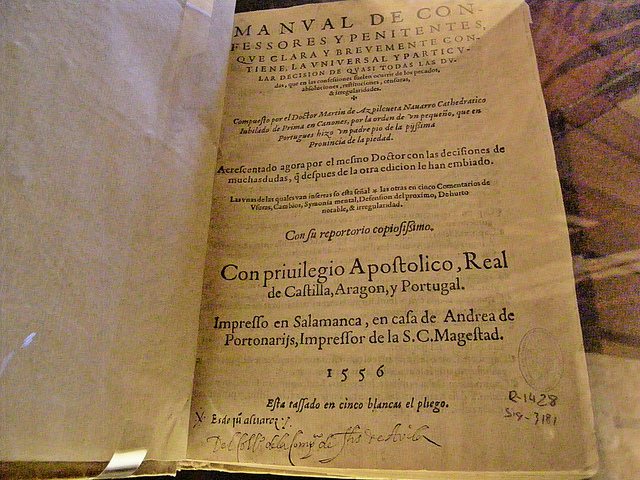 MANVAL DE CON-
FESSORES Y PENITENTES,
QVE CLARA Y BREVEMENTE CON-
TIENE, LA VNIVERSAL Y PARTICV-
LAR DECISION DE QVASI TODAS LAS DV-
das, que en las confessiones suelen ocurrir de los pecados,
absoluciones, restituciones, censuras,
& irregularidades.
Compuesto por el Doctor Martin de Azpilcueta Nauarro Cathedratico
Iubilado de Prima en Canones, por la orden de vn pequeño, que en
Portugues hizo vn padre pio de la pijssima
Prouincia de la piedad.
Acrescentado agora por el mesmo Doctor con las decisiones de
muchas dudas, q̃ despues de la otra edicion le han embiado.
Las vnas de las quales van insertas so esta señal * las otras en cinco Comentarios de
Vsuras, Cambios, Symonia mental, Defension del proximo, De hurto
notable, & irregularidad.
Con su reportorio copiosissimo.
Con priuilegio Apostolico, Real
de Castilla, Aragon, y Portugal.
Impresso en Salamanca, en casa de Andrea de
Portonarijs, Impressor de la S.C. Magestad.
1556
Esta tassado en cinco blancas el pliego.
R-1428
Sig.-3181
Del de la Comp.ª de Auila